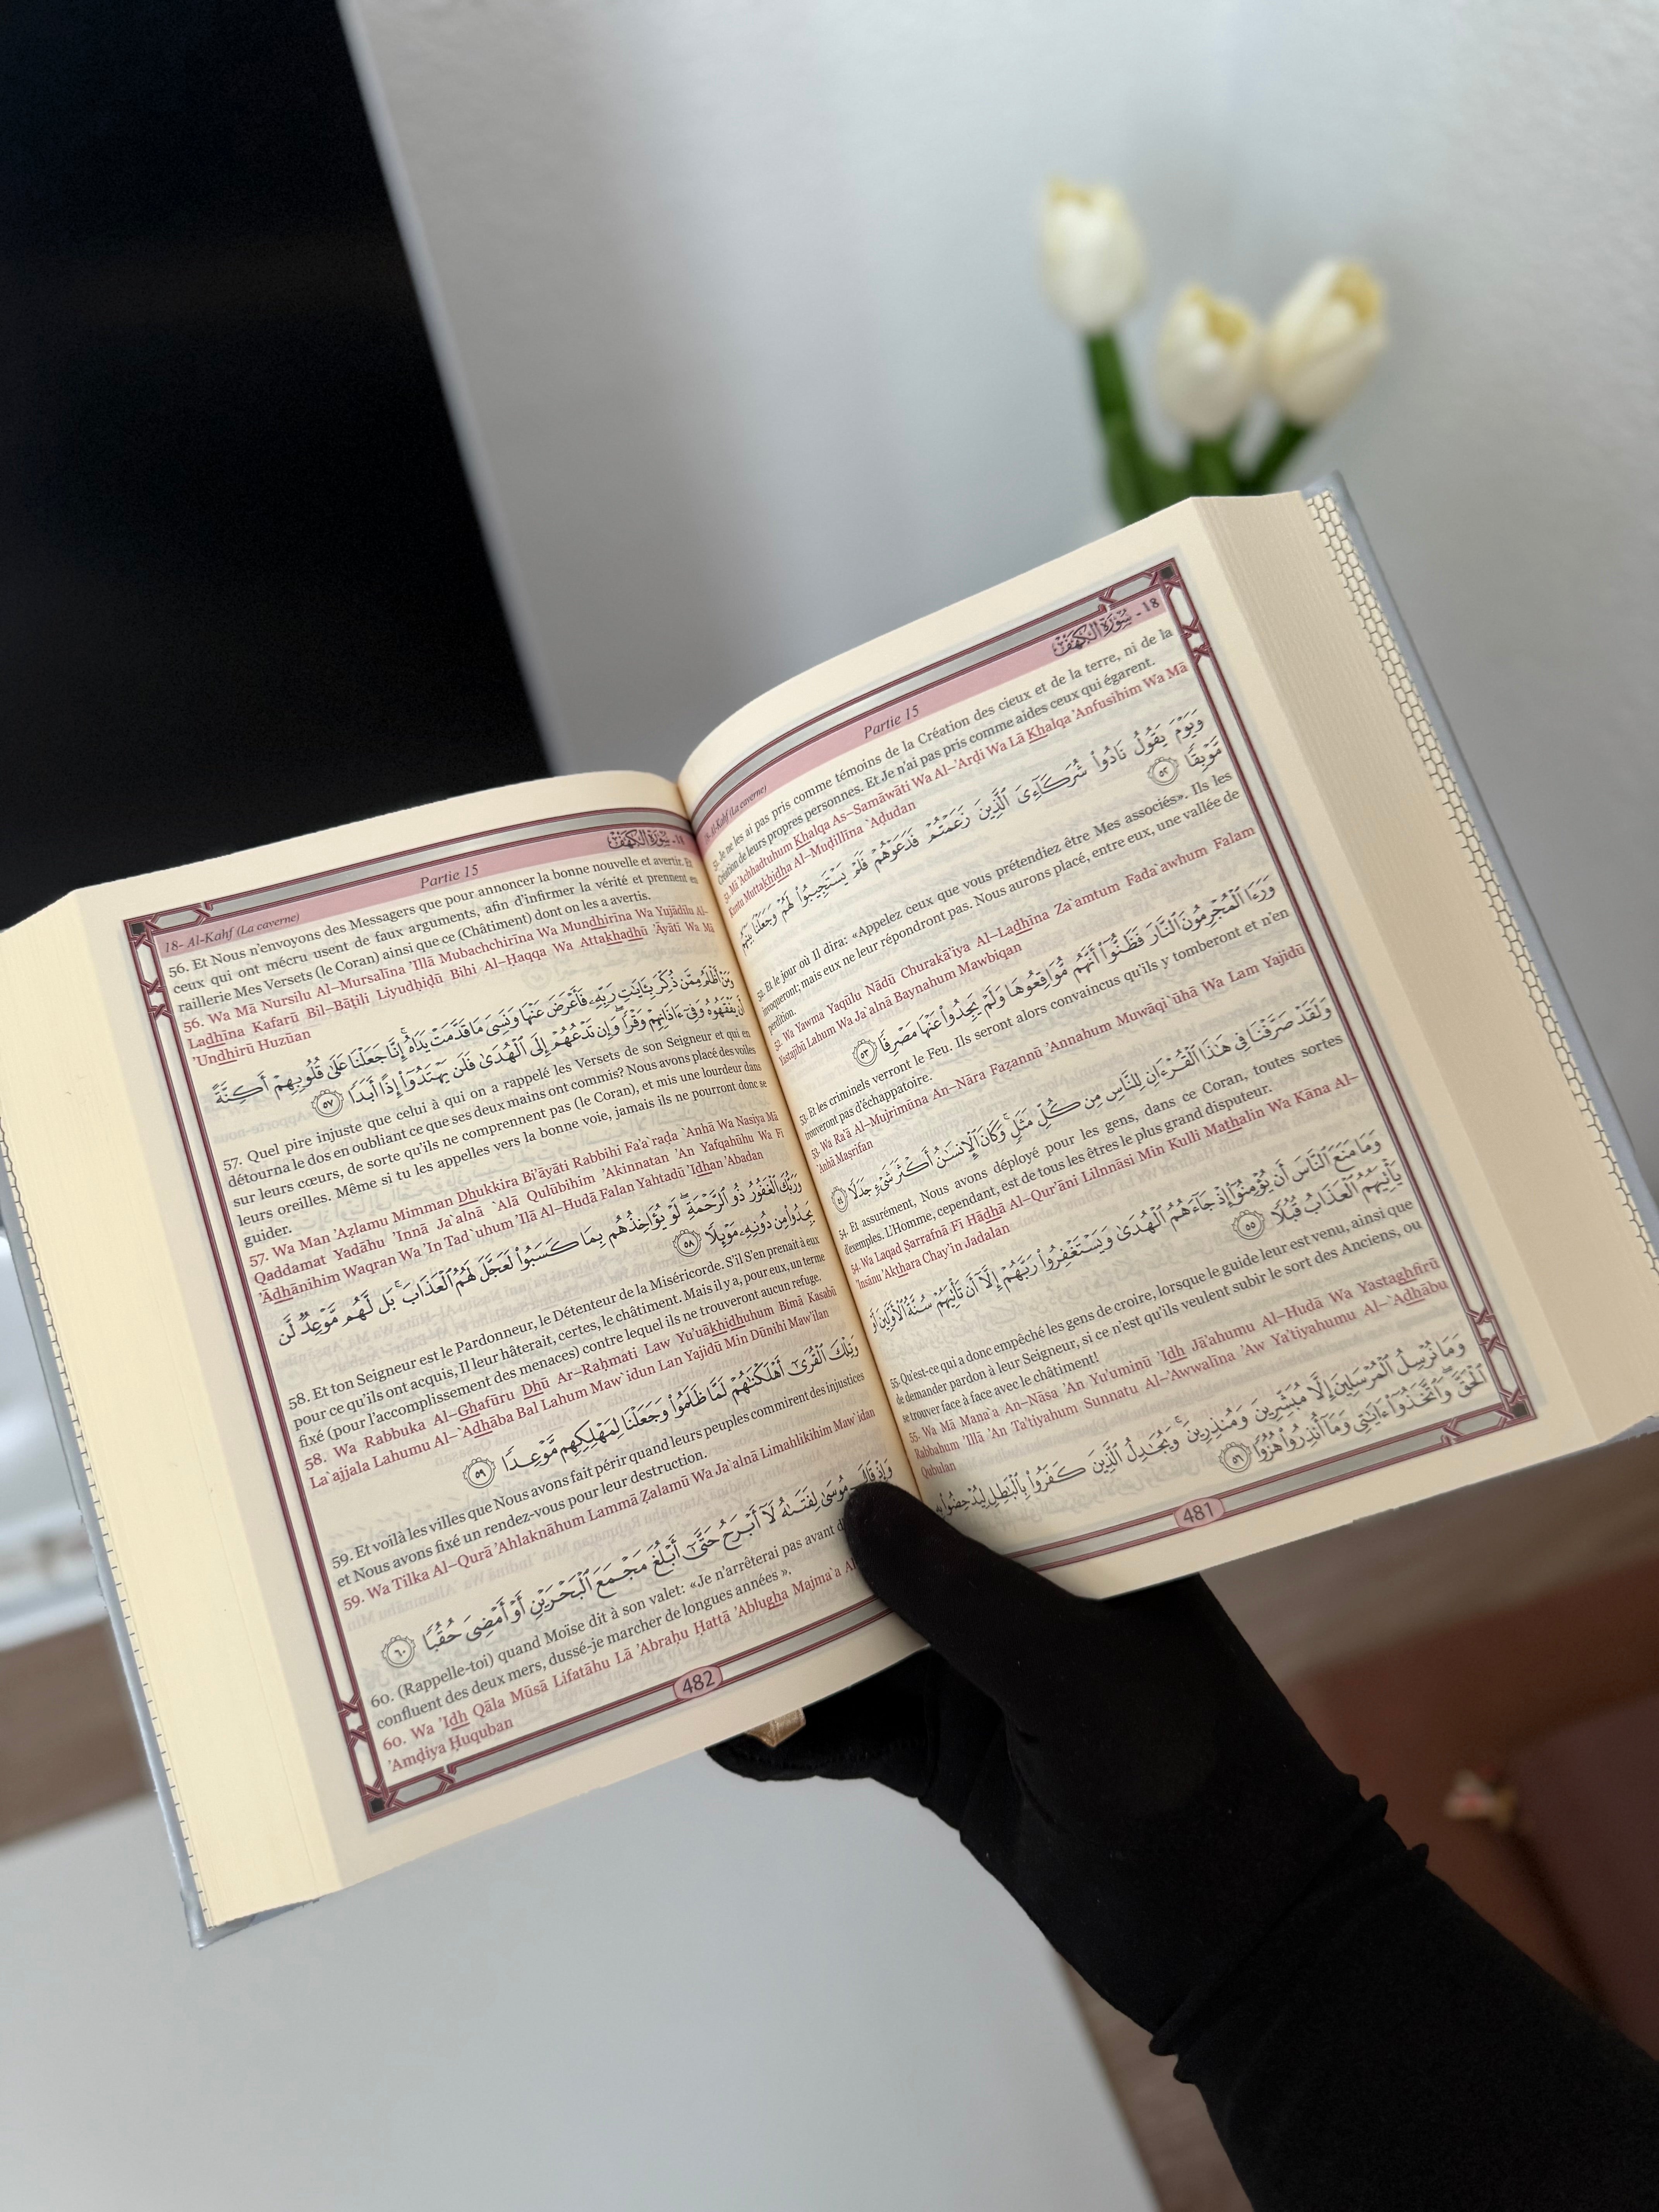 18- Al-Kahf (La caverne) Partie 15 18 - سُورَةُ الكَهْفِ
51. Je ne les ai pas pris comme témoins de la Création des cieux et de la terre, ni de la
Création de leurs propres personnes. Et Je n'ai pas pris comme aides ceux qui égarent.
51. Mā 'Achhadtuhum Khalqa As–Samāwāti Wa Al–'Arḍi Wa Lā Khalqa 'Anfusihim Wa Mā
Kuntu Muttakhidha Al–Muḍillīna `Aḍudan
وَيَوْمَ يَقُولُ نَادُوا۟ شُرَكَآءِىَ ٱلَّذِينَ زَعَمْتُمْ فَدَعَوْهُمْ فَلَمْ يَسْتَجِيبُوا۟ لَهُمْ وَجَعَلْنَا بَيْنَهُم
مَّوْبِقًا ٥٢
52. Et le jour où Il dira: «Appelez ceux que vous prétendiez être Mes associés». Ils les
invoqueront; mais eux ne leur répondront pas. Nous aurons placé, entre eux, une vallée de
perdition.
52. Wa Yawma Yaqūlu Nādū Churakā'iya Al–Ladhīna Za`amtum Fada`awhum Falam
Yastajībū Lahum Wa Ja`alnā Baynahum Mawbiqan
وَرَءَا ٱلْمُجْرِمُونَ ٱلنَّارَ فَظَنُّوٓا۟ أَنَّهُم مُّوَاقِعُوهَا وَلَمْ يَجِدُوا۟ عَنْهَا مَصْرِفًا ٥٣
53. Et les criminels verront le Feu. Ils seront alors convaincus qu'ils y tomberont et n'en
trouveront pas d'échappatoire.
53. Wa Ra'ā Al–Mujrimūna An–Nāra Faẓannū 'Annahum Muwāqi`ūhā Wa Lam Yajidū
`Anhā Maṣrifan
وَلَقَدْ صَرَّفْنَا فِى هَـٰذَا ٱلْقُرْءَانِ لِلنَّاسِ مِن كُلِّ مَثَلٍ وَكَانَ ٱلْإِنسَـٰنُ أَكْثَرَ شَىْءٍ جَدَلًا ٥٤
54. Et assurément, Nous avons déployé pour les gens, dans ce Coran, toutes sortes
d'exemples. L'Homme, cependant, est de tous les êtres le plus grand disputeur.
54. Wa Laqad Ṣarrafnā Fī Hādhā Al–Qur'āni Lilnnāsi Min Kulli Mathalin Wa Kāna Al–
'Insānu 'Akthara Chay'in Jadalan
وَمَا مَنَعَ ٱلنَّاسَ أَن يُؤْمِنُوٓا۟ إِذْ جَآءَهُمُ ٱلْهُدَىٰ وَيَسْتَغْفِرُوا۟ رَبَّهُمْ إِلَّآ أَن تَأْتِيَهُمْ سُنَّةُ ٱلْأَوَّلِينَ أَوْ
يَأْتِيَهُمُ ٱلْعَذَابُ قُبُلًا ٥٥
55. Qu'est-ce qui a donc empêché les gens de croire, lorsque le guide leur est venu, ainsi que
de demander pardon à leur Seigneur, si ce n'est qu'ils veulent subir le sort des Anciens, ou
se trouver face à face avec le châtiment!
55. Wa Mā Mana`a An–Nāsa 'An Yu'uminū 'Idh Jā'ahumu Al–Hudā Wa Yastaghfirū
Rabbahum 'Illā 'An Ta'tiyahum Sunnatu Al–'Awwalīna 'Aw Ya'tiyahumu Al–`Adhābu
Qubulan
وَمَا نُرْسِلُ ٱلْمُرْسَلِينَ إِلَّا مُبَشِّرِينَ وَمُنذِرِينَ وَيُجَـٰدِلُ ٱلَّذِينَ كَفَرُوا۟ بِٱلْبَـٰطِلِ لِيُدْحِضُوا۟ بِهِ
ٱلْحَقَّ وَٱتَّخَذُوٓا۟ ءَايَـٰتِى وَمَآ أُنذِرُوا۟ هُزُوًا ٥٦
481
18- Al-Kahf (La caverne) Partie 15 18 - سُورَةُ الكَهْفِ
56. Et Nous n'envoyons des Messagers que pour annoncer la bonne nouvelle et avertir. Et
ceux qui ont mécru usent de faux arguments, afin d'infirmer la vérité et prennent en
raillerie Mes Versets (le Coran) ainsi que ce (Châtiment) dont on les a avertis.
56. Wa Mā Nursilu Al–Mursalīna 'Illā Mubachchirīna Wa Mundhirīna Wa Yujādilu Al–
Ladhīna Kafarū Bil–Bāṭili Liyudḥiḍū Bihi Al–Ḥaqqa Wa Attakhadhū 'Āyātī Wa Mā
'Undhirū Huzūan
وَمَنْ أَظْلَمُ مِمَّن ذُكِّرَ بِـَٔايَـٰتِ رَبِّهِۦ فَأَعْرَضَ عَنْهَا وَنَسِىَ مَا قَدَّمَتْ يَدَاهُ إِنَّا جَعَلْنَا عَلَىٰ قُلُوبِهِمْ أَكِنَّةً
أَن يَفْقَهُوهُ وَفِىٓ ءَاذَانِهِمْ وَقْرًا وَإِن تَدْعُهُمْ إِلَى ٱلْهُدَىٰ فَلَن يَهْتَدُوٓا۟ إِذًا أَبَدًا ٥٧
57. Quel pire injuste que celui à qui on a rappelé les Versets de son Seigneur et qui en
détourna le dos en oubliant ce que ses deux mains ont commis? Nous avons placé des voiles
sur leurs cœurs, de sorte qu'ils ne comprennent pas (le Coran), et mis une lourdeur dans
leurs oreilles. Même si tu les appelles vers la bonne voie, jamais ils ne pourront donc se
guider.
57. Wa Man 'Aẓlamu Mimman Dhukkira Bi'āyāti Rabbihi Fa'a`raḍa `Anhā Wa Nasiya Mā
Qaddamat Yadāhu 'Innā Ja`alnā `Alá Qulūbihim 'Akinnatan 'An Yafqahūhu Wa Fī
'Ādhānihim Waqran Wa 'In Tad`uhum 'Ilā Al–Hudā Falan Yahtadū 'Idhan 'Abadan
وَرَبُّكَ ٱلْغَفُورُ ذُو ٱلرَّحْمَةِ لَوْ يُؤَاخِذُهُم بِمَا كَسَبُوا۟ لَعَجَّلَ لَهُمُ ٱلْعَذَابَ بَل لَّهُم مَّوْعِدٌ لَّن
يَجِدُوا۟ مِن دُونِهِۦ مَوْئِلًا ٥٨
58. Et ton Seigneur est le Pardonneur, le Détenteur de la Miséricorde. S'il S'en prenait à eux
pour ce qu'ils ont acquis, Il leur hâterait, certes, le châtiment. Mais il y a, pour eux, un terme
fixé (pour l'accomplissement des menaces) contre lequel ils ne trouveront aucun refuge.
58. Wa Rabbuka Al–Ghafūru Dhū Ar–Raḥmati Law Yu'uākhidhuhum Bimā Kasabū
La`ajjala Lahumu Al–`Adhāba Bal Lahum Maw`idun Lan Yajidū Min Dūnihi Maw'ilan
وَتِلْكَ ٱلْقُرَىٰٓ أَهْلَكْنَـٰهُمْ لَمَّا ظَلَمُوا۟ وَجَعَلْنَا لِمَهْلِكِهِم مَّوْعِدًا ٥٩
59. Et voilà les villes que Nous avons fait périr quand leurs peuples commirent des injustices
et Nous avons fixé un rendez-vous pour leur destruction.
59. Wa Tilka Al–Qurā 'Ahlaknāhum Lammā Ẓalamū Wa Ja`alnā Limahlikihim Maw`idan
وَإِذْ قَالَ مُوسَىٰ لِفَتَىٰهُ لَآ أَبْرَحُ حَتَّىٰٓ أَبْلُغَ مَجْمَعَ ٱلْبَحْرَيْنِ أَوْ أَمْضِىَ حُقُبًا ٦٠
60. (Rappelle-toi) quand Moïse dit à son valet: «Je n'arrêterai pas avant
confluent des deux mers, dussé-je marcher de longues années ».
60. Wa 'Idh Qāla Mūsā Lifatāhu Lā 'Abraḥu Ḥattā 'Ablugha Majma`a
'Amḍiya Ḥuquban
482